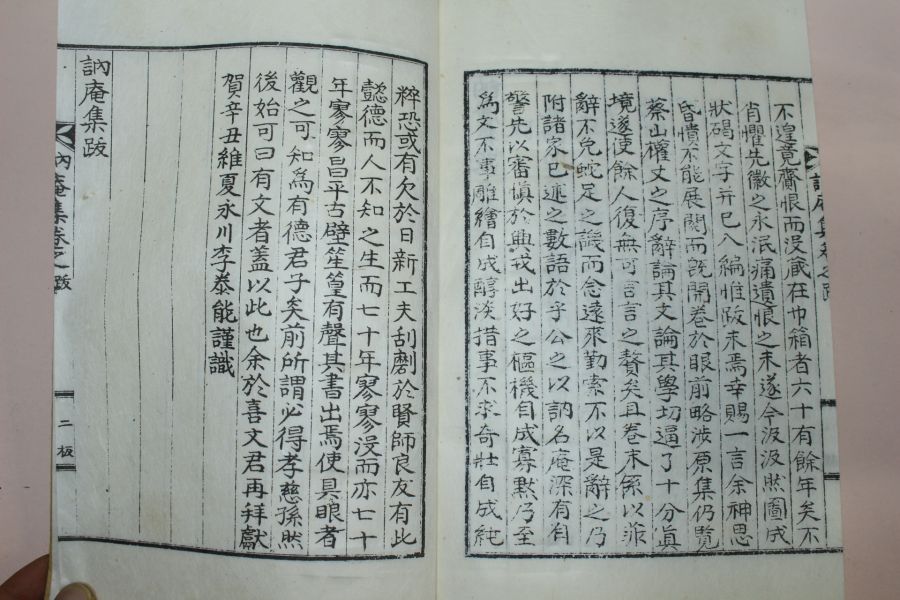 不遑竟齎恨而沒藏在巾箱者六十有餘年矣不
肖懼先徽之永泯痛遺恨之未遂今汲汲然圖成
狀碣文字并已入編惟跋未焉幸賜一言余神思
昏憒不能展閱而旣開卷於眼前略涉原集仍覽
蔡山權丈之序辭論其文論其學切逼了十分眞
境遂使餘人復無可言言之贅矣且卷末係以菲
辭不免蛇足之譏而念遠來勤索不以是辭之乃
附諸家已述之數語於乎公之以訥名庵深有自
警先以審愼於興戎出好之樞機自成寡默乃至
爲文不事雕繪自成醇淡措事不求奇壯自成純
粹恐或有欠於日新工夫刮劘於賢師良友有此
懿德而人不知之生而七十年寥寥沒而亦七十
年寥寥昌平古壁笙篁有聲其書出焉使具眼者
觀之可知爲有德君子矣前所謂必得孝慈孫然
後始可曰有文者蓋以此也余於喜文君再拜獻
賀辛丑維夏永川李泰能謹識
訥庵集跋
訥庵集卷之一 跋
二 板